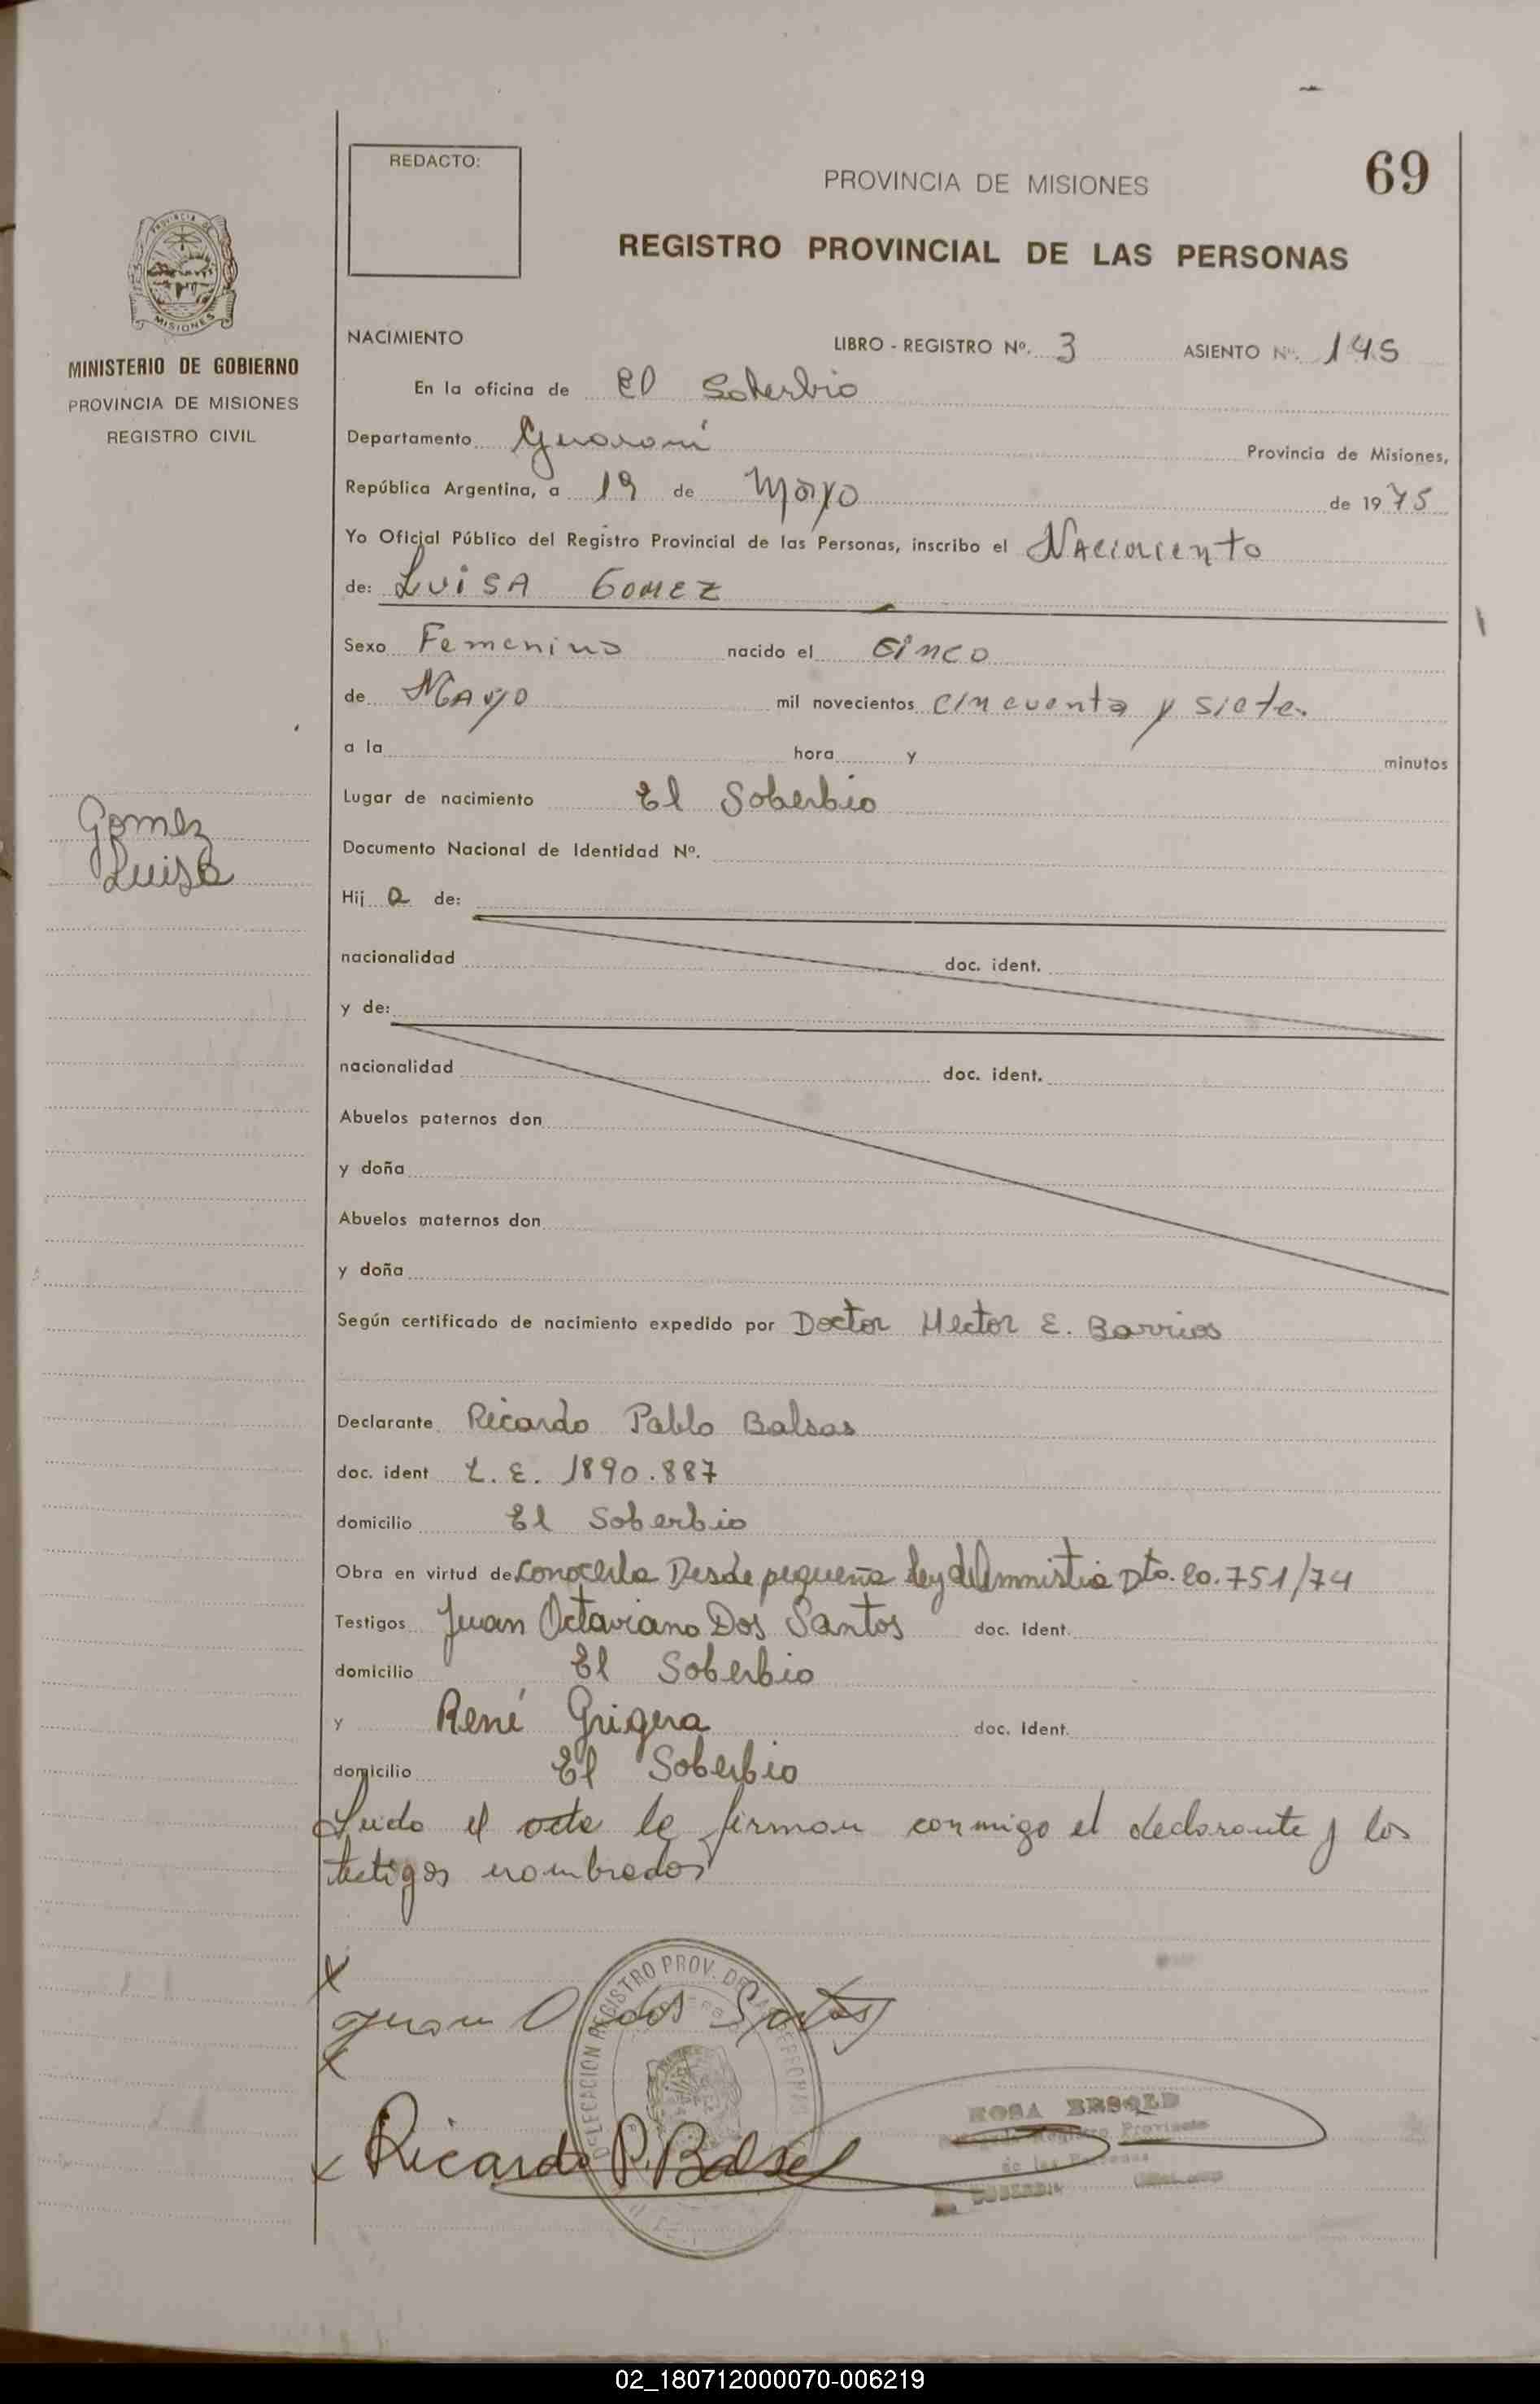 69
REDACTO:
PROVINCIA DE MISIONES
REGISTRO PROVINCIAL DE LAS PERSONAS
PROVINCIA DE
MISIONES
MINISTERIO DE GOBIERNO
PROVINCIA DE MISIONES
REGISTRO CIVIL
NACIMIENTO LIBRO - REGISTRO Nº. 3 ASIENTO Nº. 145
En la oficina de El Soberbio
Departamento Guaraní Provincia de Misiones,
República Argentina, a 19 de Mayo de 1975
Yo Oficial Público del Registro Provincial de las Personas, inscribo el Nacimiento
de: LUISA GOMEZ
Sexo Femenino nacido el cinco
de Mayo mil novecientos cincuenta y siete.
a la hora y minutos
Lugar de nacimiento El Soberbio
Gomez
Luisa
Documento Nacional de Identidad Nº.
Hij a de:
nacionalidad doc. ident.
y de:
nacionalidad doc. ident.
Abuelos paternos don
y doña
Abuelos maternos don
y doña
Según certificado de nacimiento expedido por Doctor Hector E. Barrios
Declarante Ricardo Pablo Balsas
doc. ident L.E. 1890.887
domicilio El Soberbio
Obra en virtud de conocerla Desde pequeña ley de Amnistia Dto. 20.751/74
Testigos Juan Octaviano Dos Santos doc. Ident.
domicilio El Soberbio
y René Grigera doc. Ident.
domicilio El Soberbio
Leido el acta la firman conmigo el declarante y los
testigos nombrados
X
Juan O dos Santos
X
X Ricardo P. Balsas
DELEGACION REGISTRO PROV. DE LAS PERSONAS
ROSA
Registro Provincial
de las Personas
SOBERBIO
02_180712000070-006219